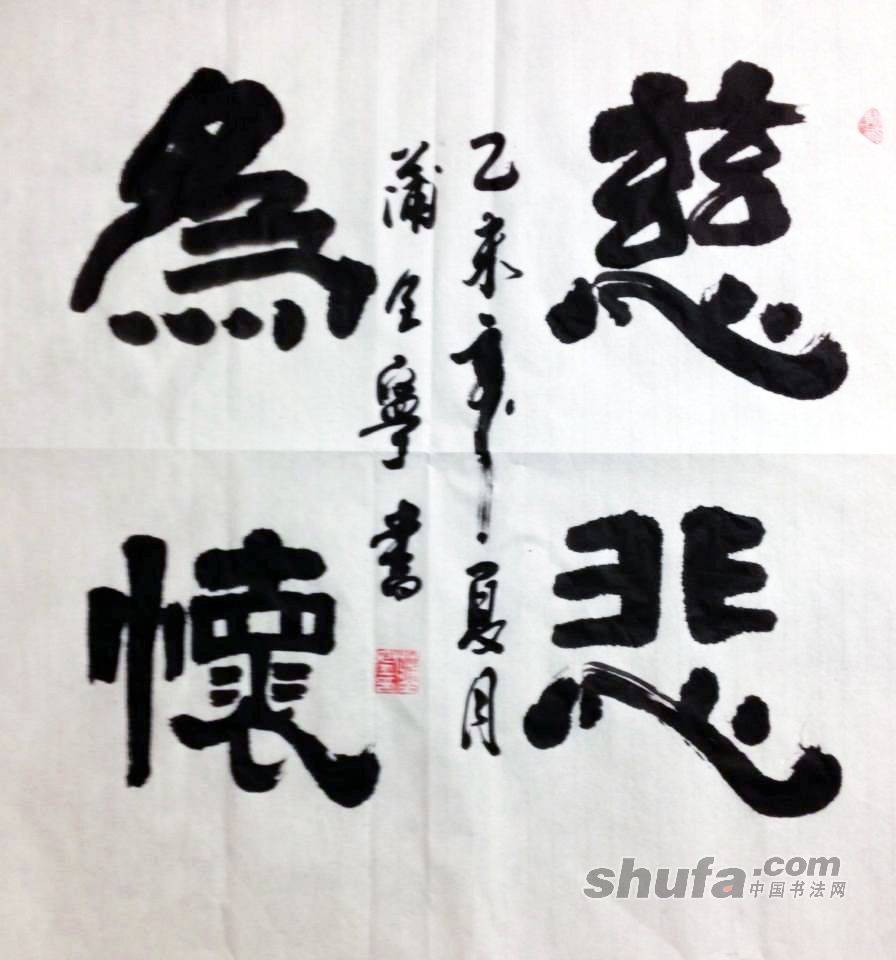 慈悲
為懷
乙未年夏月
蒲全寧書
shufa.com
中国书法网